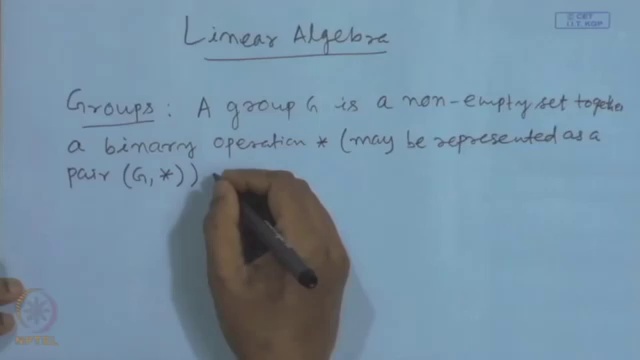 Linear Algebra
© CET
I.I.T. KGP
Groups : A group G is a non-empty set together
a binary operation * (may be represented as a
pair (G, *))
NPTEL